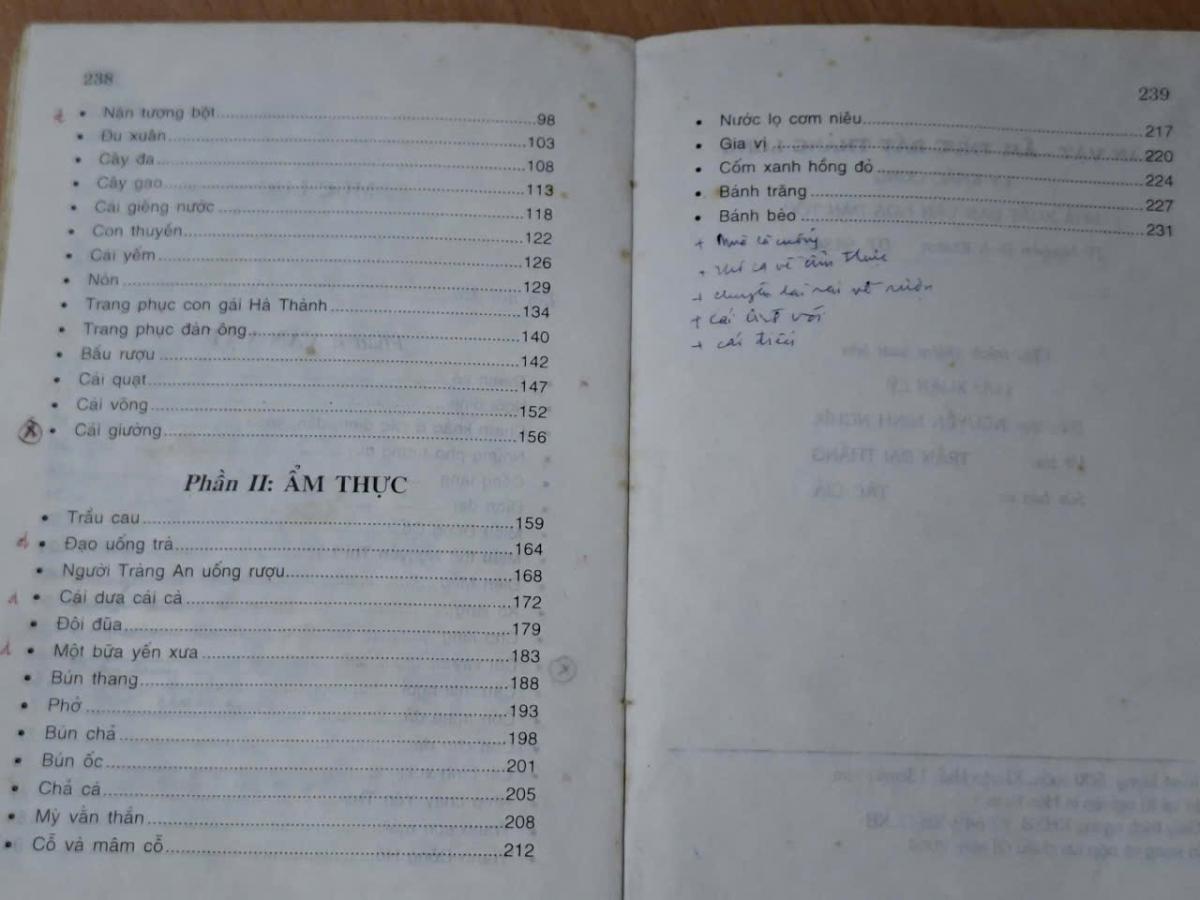 238
• Nặn tượng bột 98
• Đu xuân 103
• Cây đa 108
• Cây gạo 113
• Cái giếng nước 118
• Con thuyền 122
• Cái yếm 126
• Nón 129
• Trang phục con gái Hà Thành 134
• Trang phục đàn ông 140
• Bầu rượu 142
• Cái quạt 147
• Cái võng 152
• Cái giường 156
Phần II: ẨM THỰC
• Trầu cau 159
• Đạo uống trà 164
• Người Tràng An uống rượu 168
• Cái dưa cái cà 172
• Đôi đũa 179
• Một bữa yến xưa 183
• Bún thang 188
• Phở 193
• Bún chả 198
• Bún ốc 201
• Chả cá 205
• Mỳ vằn thắn 208
• Cỗ và mâm cỗ 212
239
• Nước lọ cơm niêu 217
• Gia vị 220
• Cốm xanh hồng đỏ 224
• Bánh trăng 227
• Bánh bèo 231
+ thi ca về ẩm thực
+ chuyện lai rai về rượu
+ cái
+ cái điếu